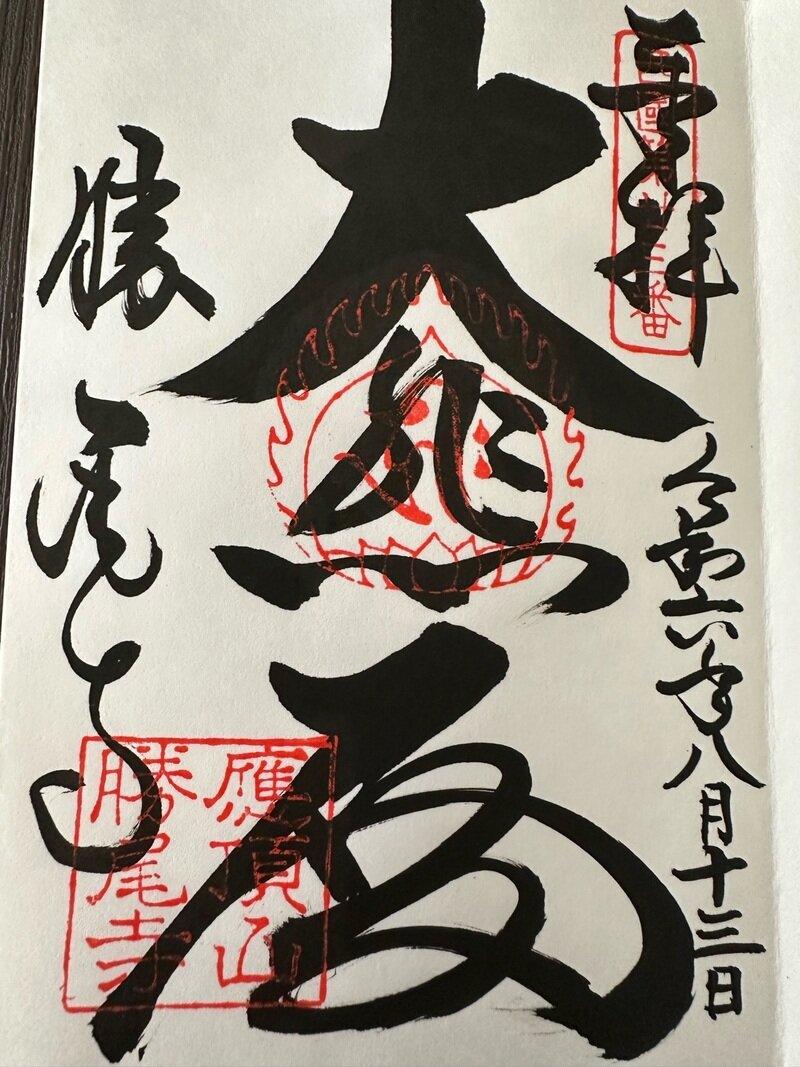 奉拝
西國第廿三番
令和六年八月十三日
大悲殿
勝尾寺
應頂山
勝尾寺